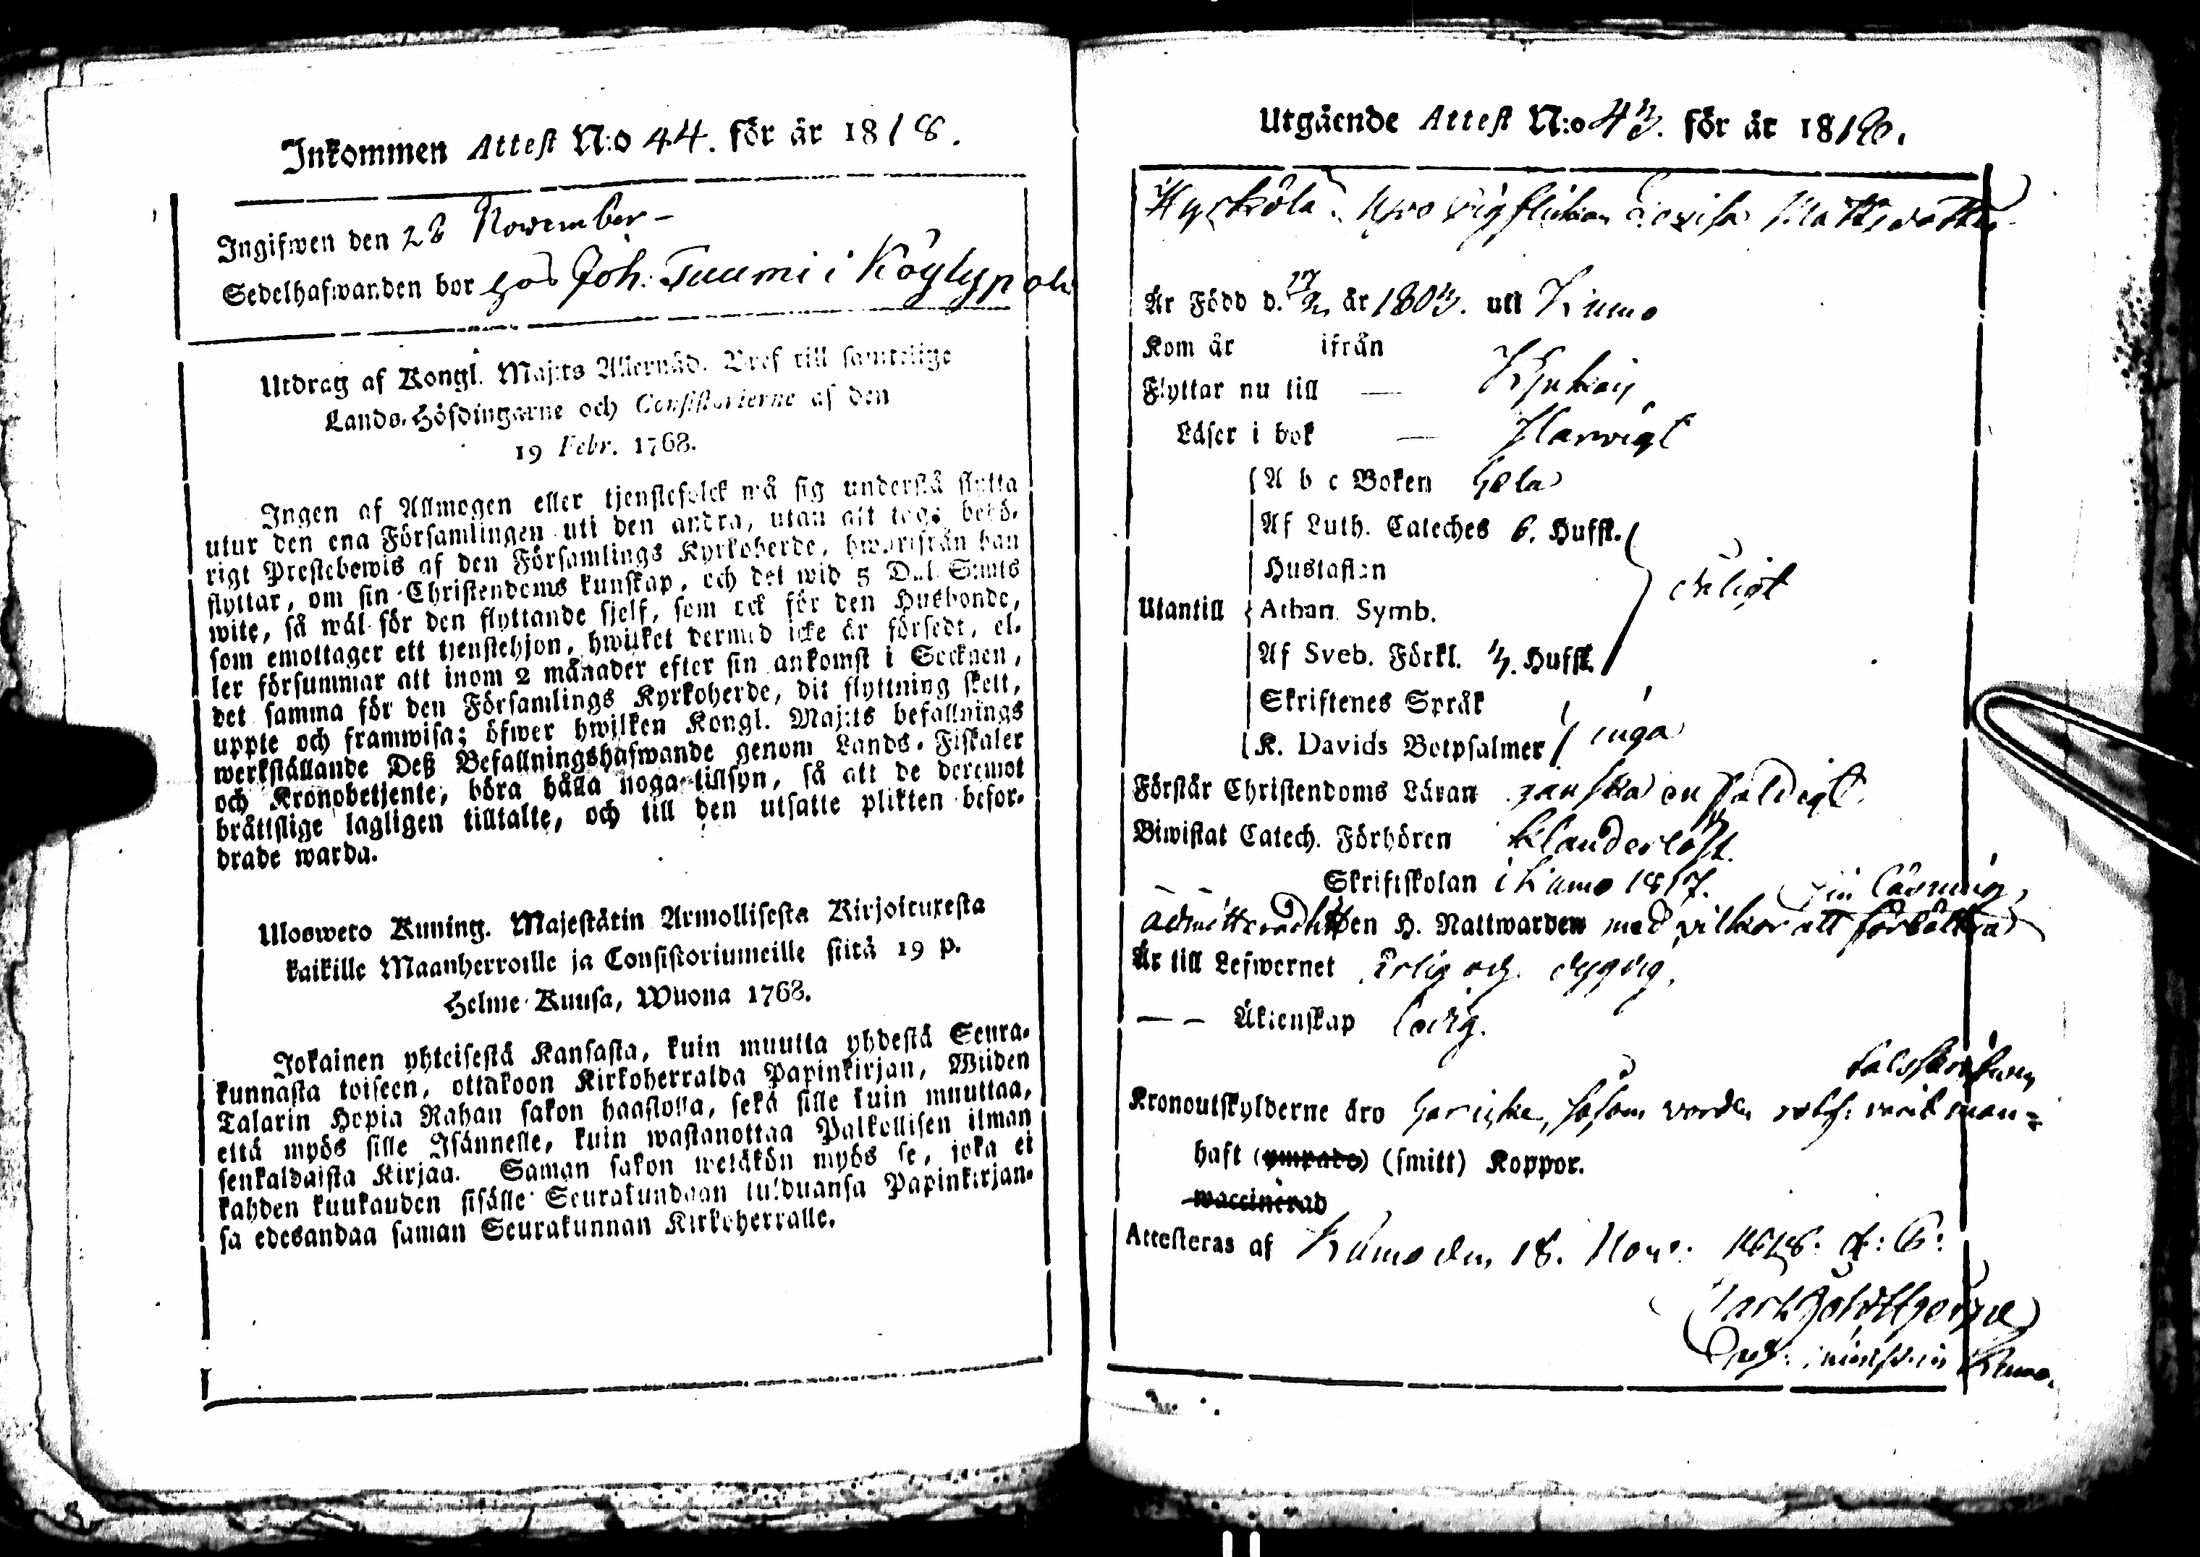 Inkommen Attest N:o 44. för år 1818.
Ingifwen den 28 November –
Sedelhafwanden bor hos Joh. Tuumi i Köylypolv
Utdrag af Kongl. Maj:ts Allernåd. Bref till samtelige
Lands-Höfdingarne och Consistorierne af den
19 Febr. 1768.
Ingen af Allmogen eller tjenstefolck må sig understå flytta
utur den ena Församlingen uti den andra, utan att taga behö-
rigt Prestebewis af den Församlings Kyrkoherde, hwarifrån han
flyttar, om sin Christendoms kunskap, och det wid 5 Dal. Smts
wite, så wäl för den flyttande sjelf, som ock för den Husbonde,
som emottager ett tjenstehjon, hwilket dermed icke är försedt, el-
ler försummar att inom 2 månader efter sin ankomst i Socknen,
det samma för den Församlings Kyrkoherde, dit flyttning skett,
uppte och framwisa; öfwer hwilken Kongl. Maj:ts befallnings
werkställande Deß Befallningshafwande genom Lands-Fiskaler
och Kronobetjente, böra hålla noga tillsyn, så att de deremot
bråttslige lagligen tilltalte, och till den utsatte plikten befor-
drade warda.
Uloswето Kuning. Majestätin Armollisesta Kirjoituxesta
kaikille Maanherroille ja Consistoriumeille siitä 19 p.
Helme-Kuusa, Wuona 1768.
Jokainen yhteisestä Kansasta, kuin muutta yhdestä Seura-
kunnasta toiseen, ottakoon Kirkoherralda Papinkirjan, Wiiden
Talarin Hopia Rahan sakon haastolla, sekä sille kuin muuttaa,
että myös sille Isännelle, kuin wastanottaa Palkollisen ilman
senkaldaista Kirjaa. Saman sakon wetäkön myös se, joka ei
kahden kuukauden sisälle Seurakundaan tulduansa Papinkirjan-
sa edesandaa saman Seurakunnan Kirkoherralle.
Utgående Attest N:o 43. för år 1818.
Lovisa Mattsdotter
Är Född d. 17/2 år 1803. uti Kumo
Kom år ifrån
Flyttar nu till —
Läser i bok — Slarvigt
Utantill
A b c Boken hela
Af Luth. Cateches 6. Huffst.
Hustaflan
Athan. Symb.
Af Sveb. Förkl. Huffst.
dåligt
Skriftenes Språk
K. Davids Botpsalmer
inga
Förstår Christendoms Läran ganska enfaldigt
Biwistat Catech. Förhören klanderlöst.
Skriftskolan i Kumo 1817.
admitterad till den H. Nattwarden med vilkor att förbättra
sin läsning,
Är till Lefwernet ärlig och dygdig.
— — Äktenskap ledig.
Kronoutskylderne äro
haft (ympade) (smitt) Koppor.
waccinerad
Attesteras af Kumo den 18. Nov. 1818.